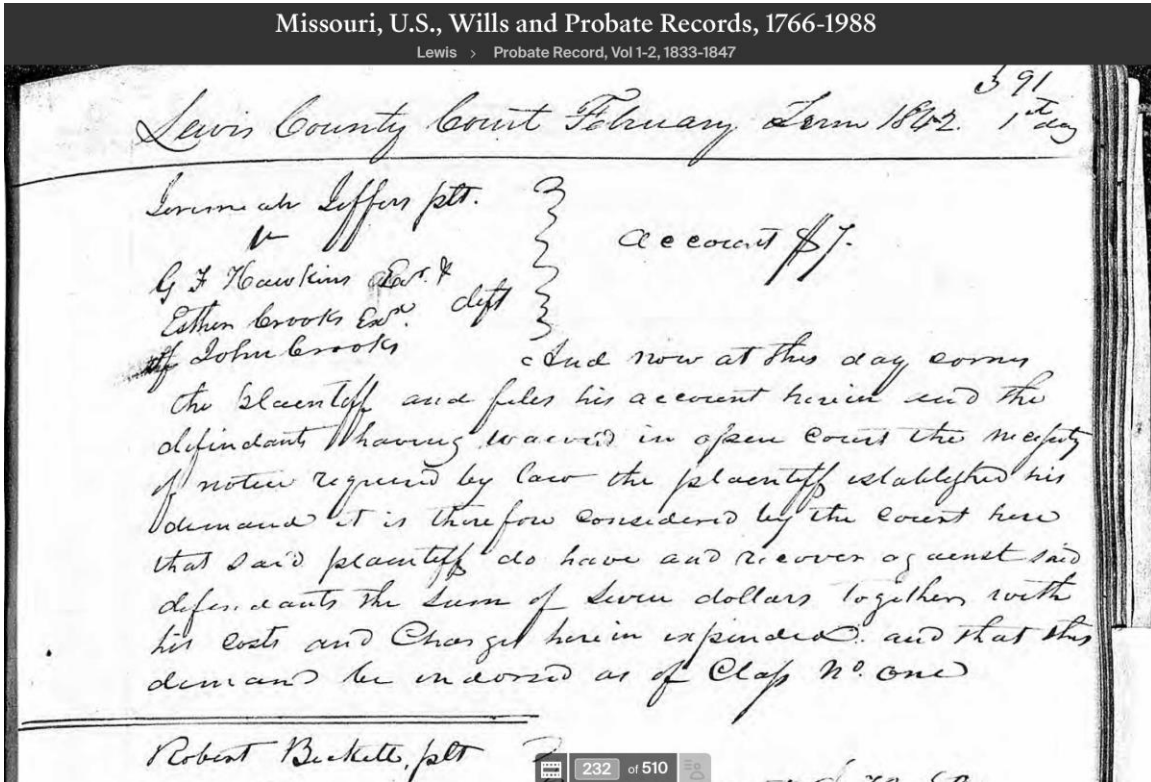 Missouri, U.S., Wills and Probate Records, 1766-1988
Lewis > Probate Record, Vol 1-2, 1833-1847
391
Lewis County Court February Term 1842. 1st day
Jeremiah Jeffers plt.
v
G F Hawkins Exr. &
Esther Crooks Exrx. deft
of John Crooks
Account $7.
And now at this day comes
the plaintiff and files his account herein and the
defendants having waived in open court the necessity
of notice required by law the plaintiff established his
demand it is therefore considered by the court here
that said plaintiff do have and recover against said
defendants the sum of seven dollars together with
his costs and Charges herein expended. and that this
demand be endorsed as of Class No. one
Robert Beckett, plt
232 of 510